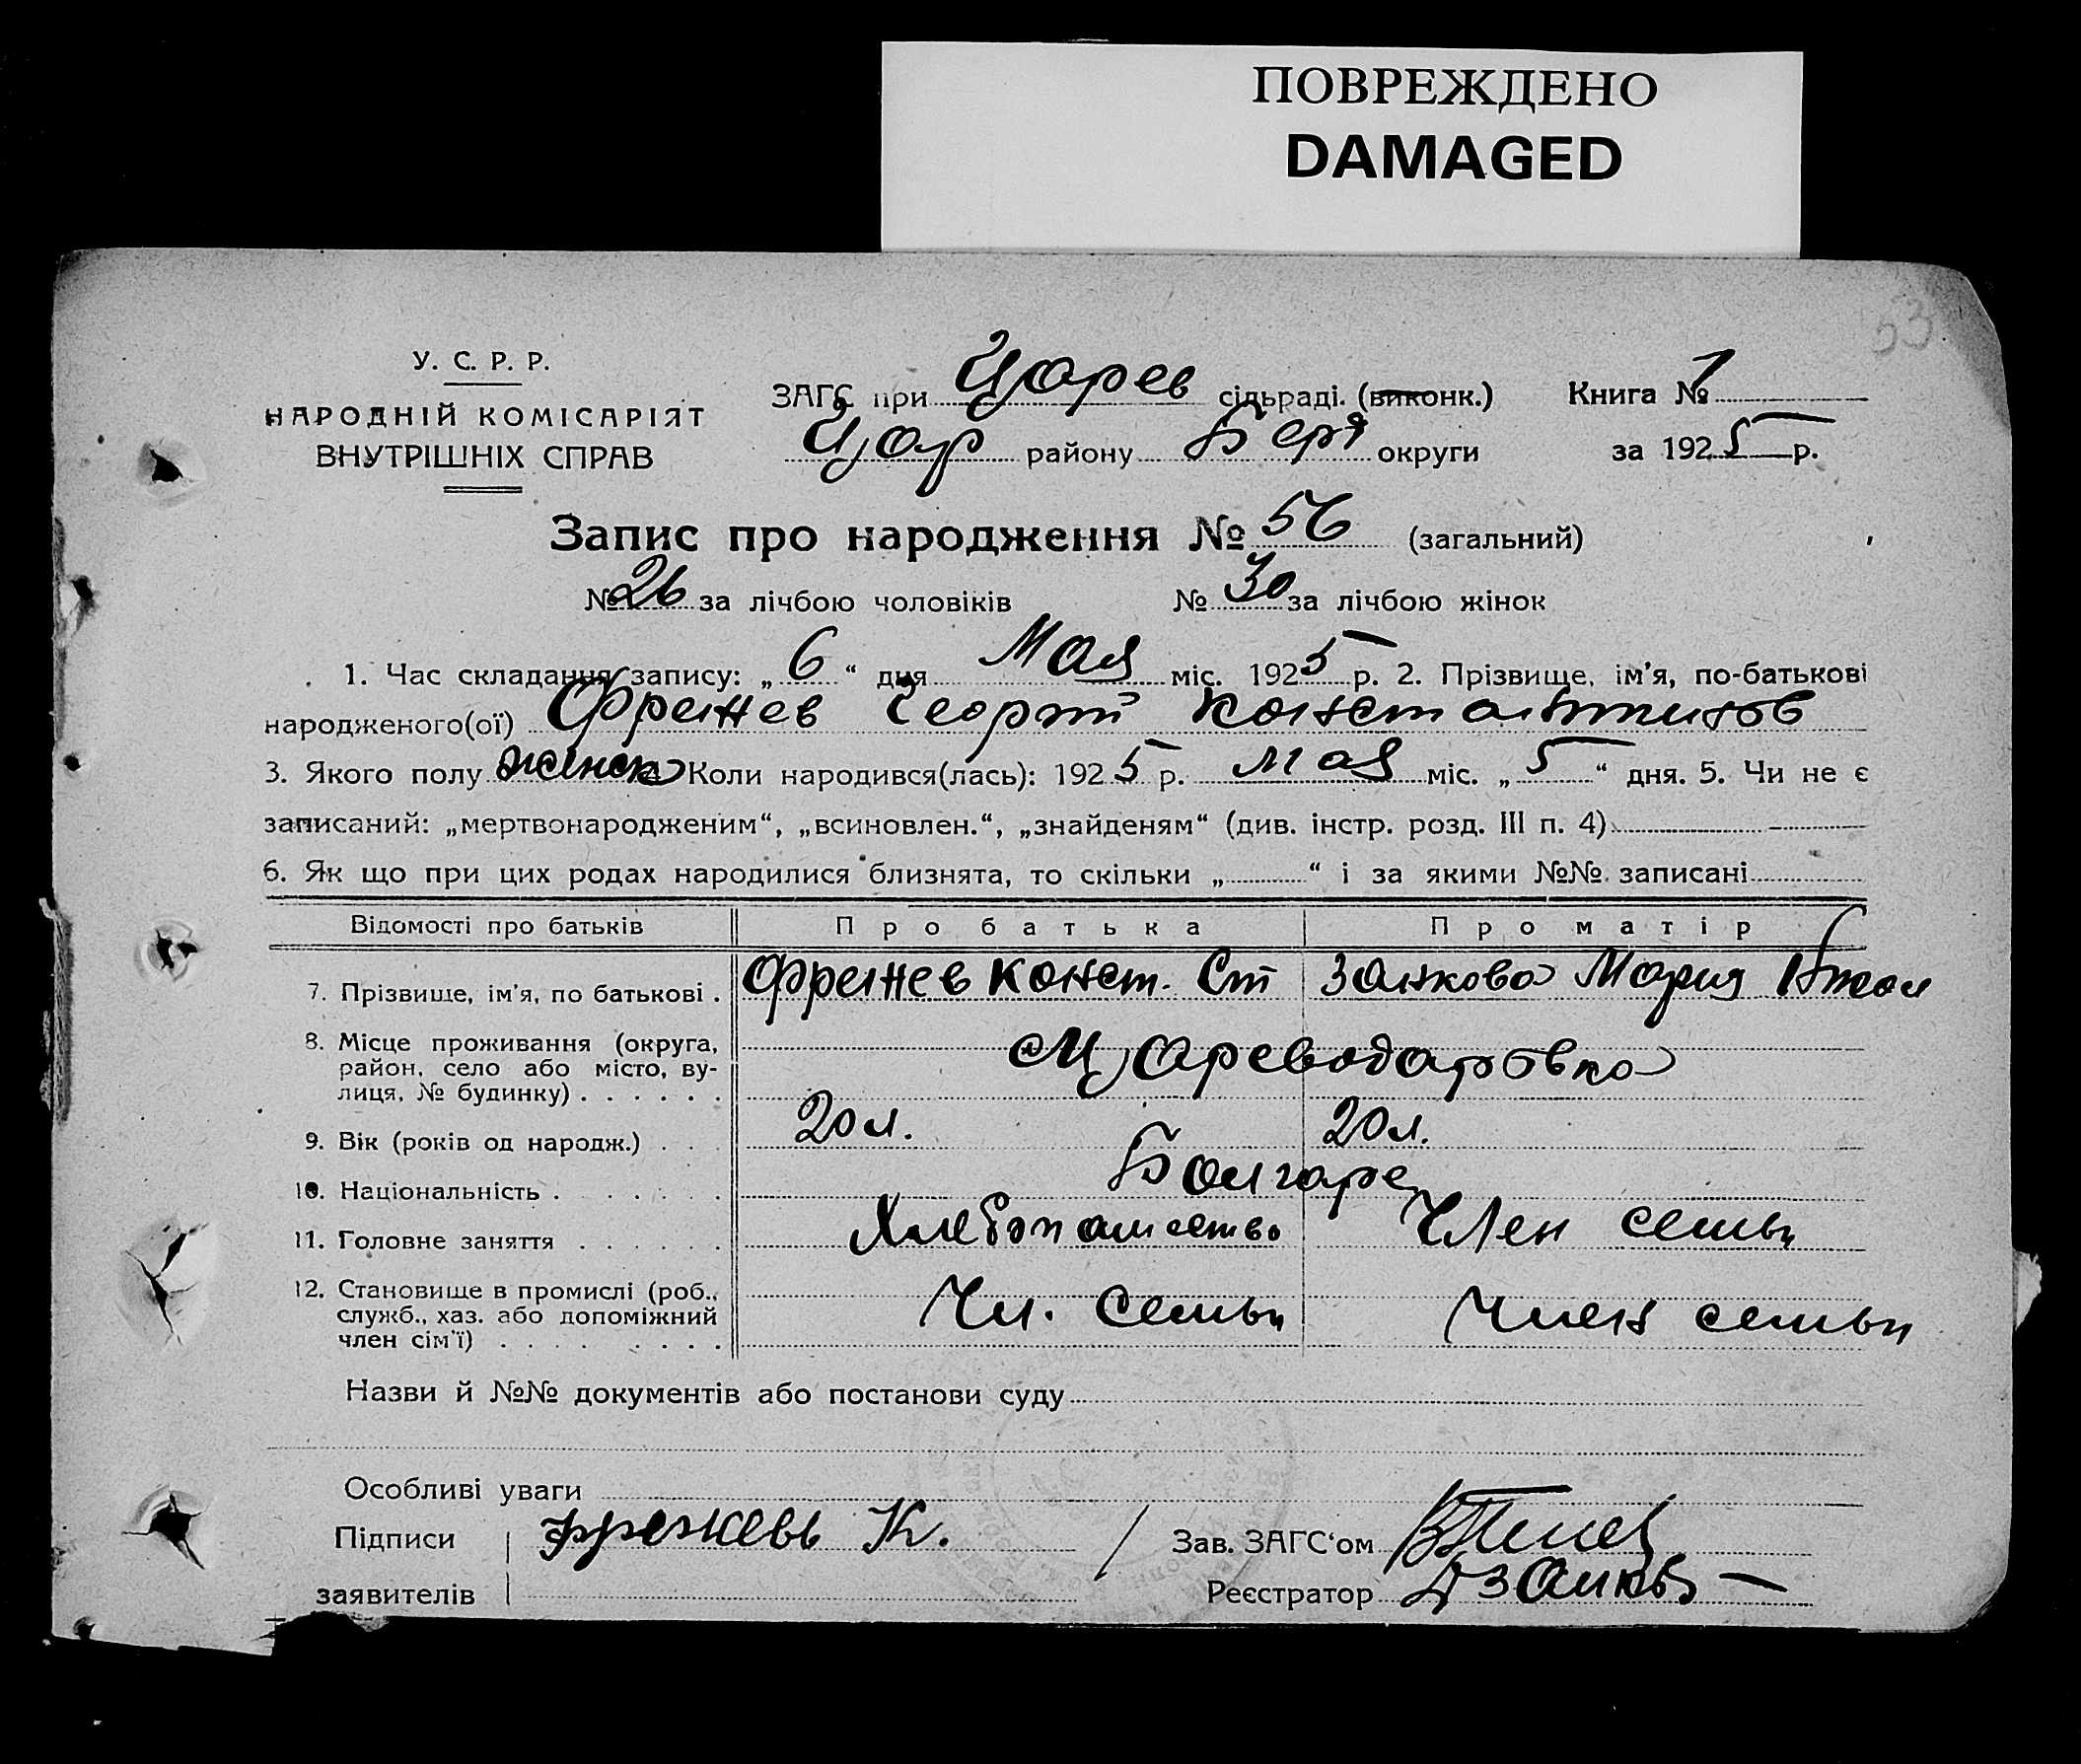 ПОВРЕЖДЕНО
DAMAGED
53
У. С. Р. Р.
НАРОДНІЙ КОМІСАРІЯТ
ВНУТРІШНІХ СПРАВ
ЗАГС при Царев сільраді. (виконк.) Книга № 1
Цар району Берд округи за 1925 р.
Запис про народження № 56 (загальний)
№ 26 за лічбою чоловіків № 30 за лічбою жінок
1. Час складання запису: „6“ дня Мая міс. 1925 р. 2. Прізвище, ім’я, по-батькові
народженого(ої) Френев Георгий Константинов
3. Якого полу женск 4. Коли народився(лась): 1925 р. мая міс. „5“ дня. 5. Чи не є
записаний: „мертвонародженим“, „всиновлен.“, „знайденям“ (див. інстр. розд. III п. 4)
6. Як що при цих родах народилися близнята, то скільки „ “ і за якими №№ записані
Відомості про батьків Про батька Про матір
7. Прізвище, ім’я, по батькові . Френев Конст. Ст Занкова Мария
8. Місце проживання (округа,
район, село або місто, ву-
лиця, № будинку) . . . . . . Цареводаровка
9. Вік (років од народж.) . . . 20 л. 20 л.
10. Національність . . . . . . Болгаре
11. Головне заняття . . . . . . Хлебопашество Член семьи
12. Становище в промислі (роб.,
служб., хаз. або допоміжний
член сім’ї) . . . . . . . . Чл. семьи Член семьи
Назви й №№ документів або постанови суду
Особливі уваги
Підписи К. Зав. ЗАГС‘ом
заявителів Реєстратор